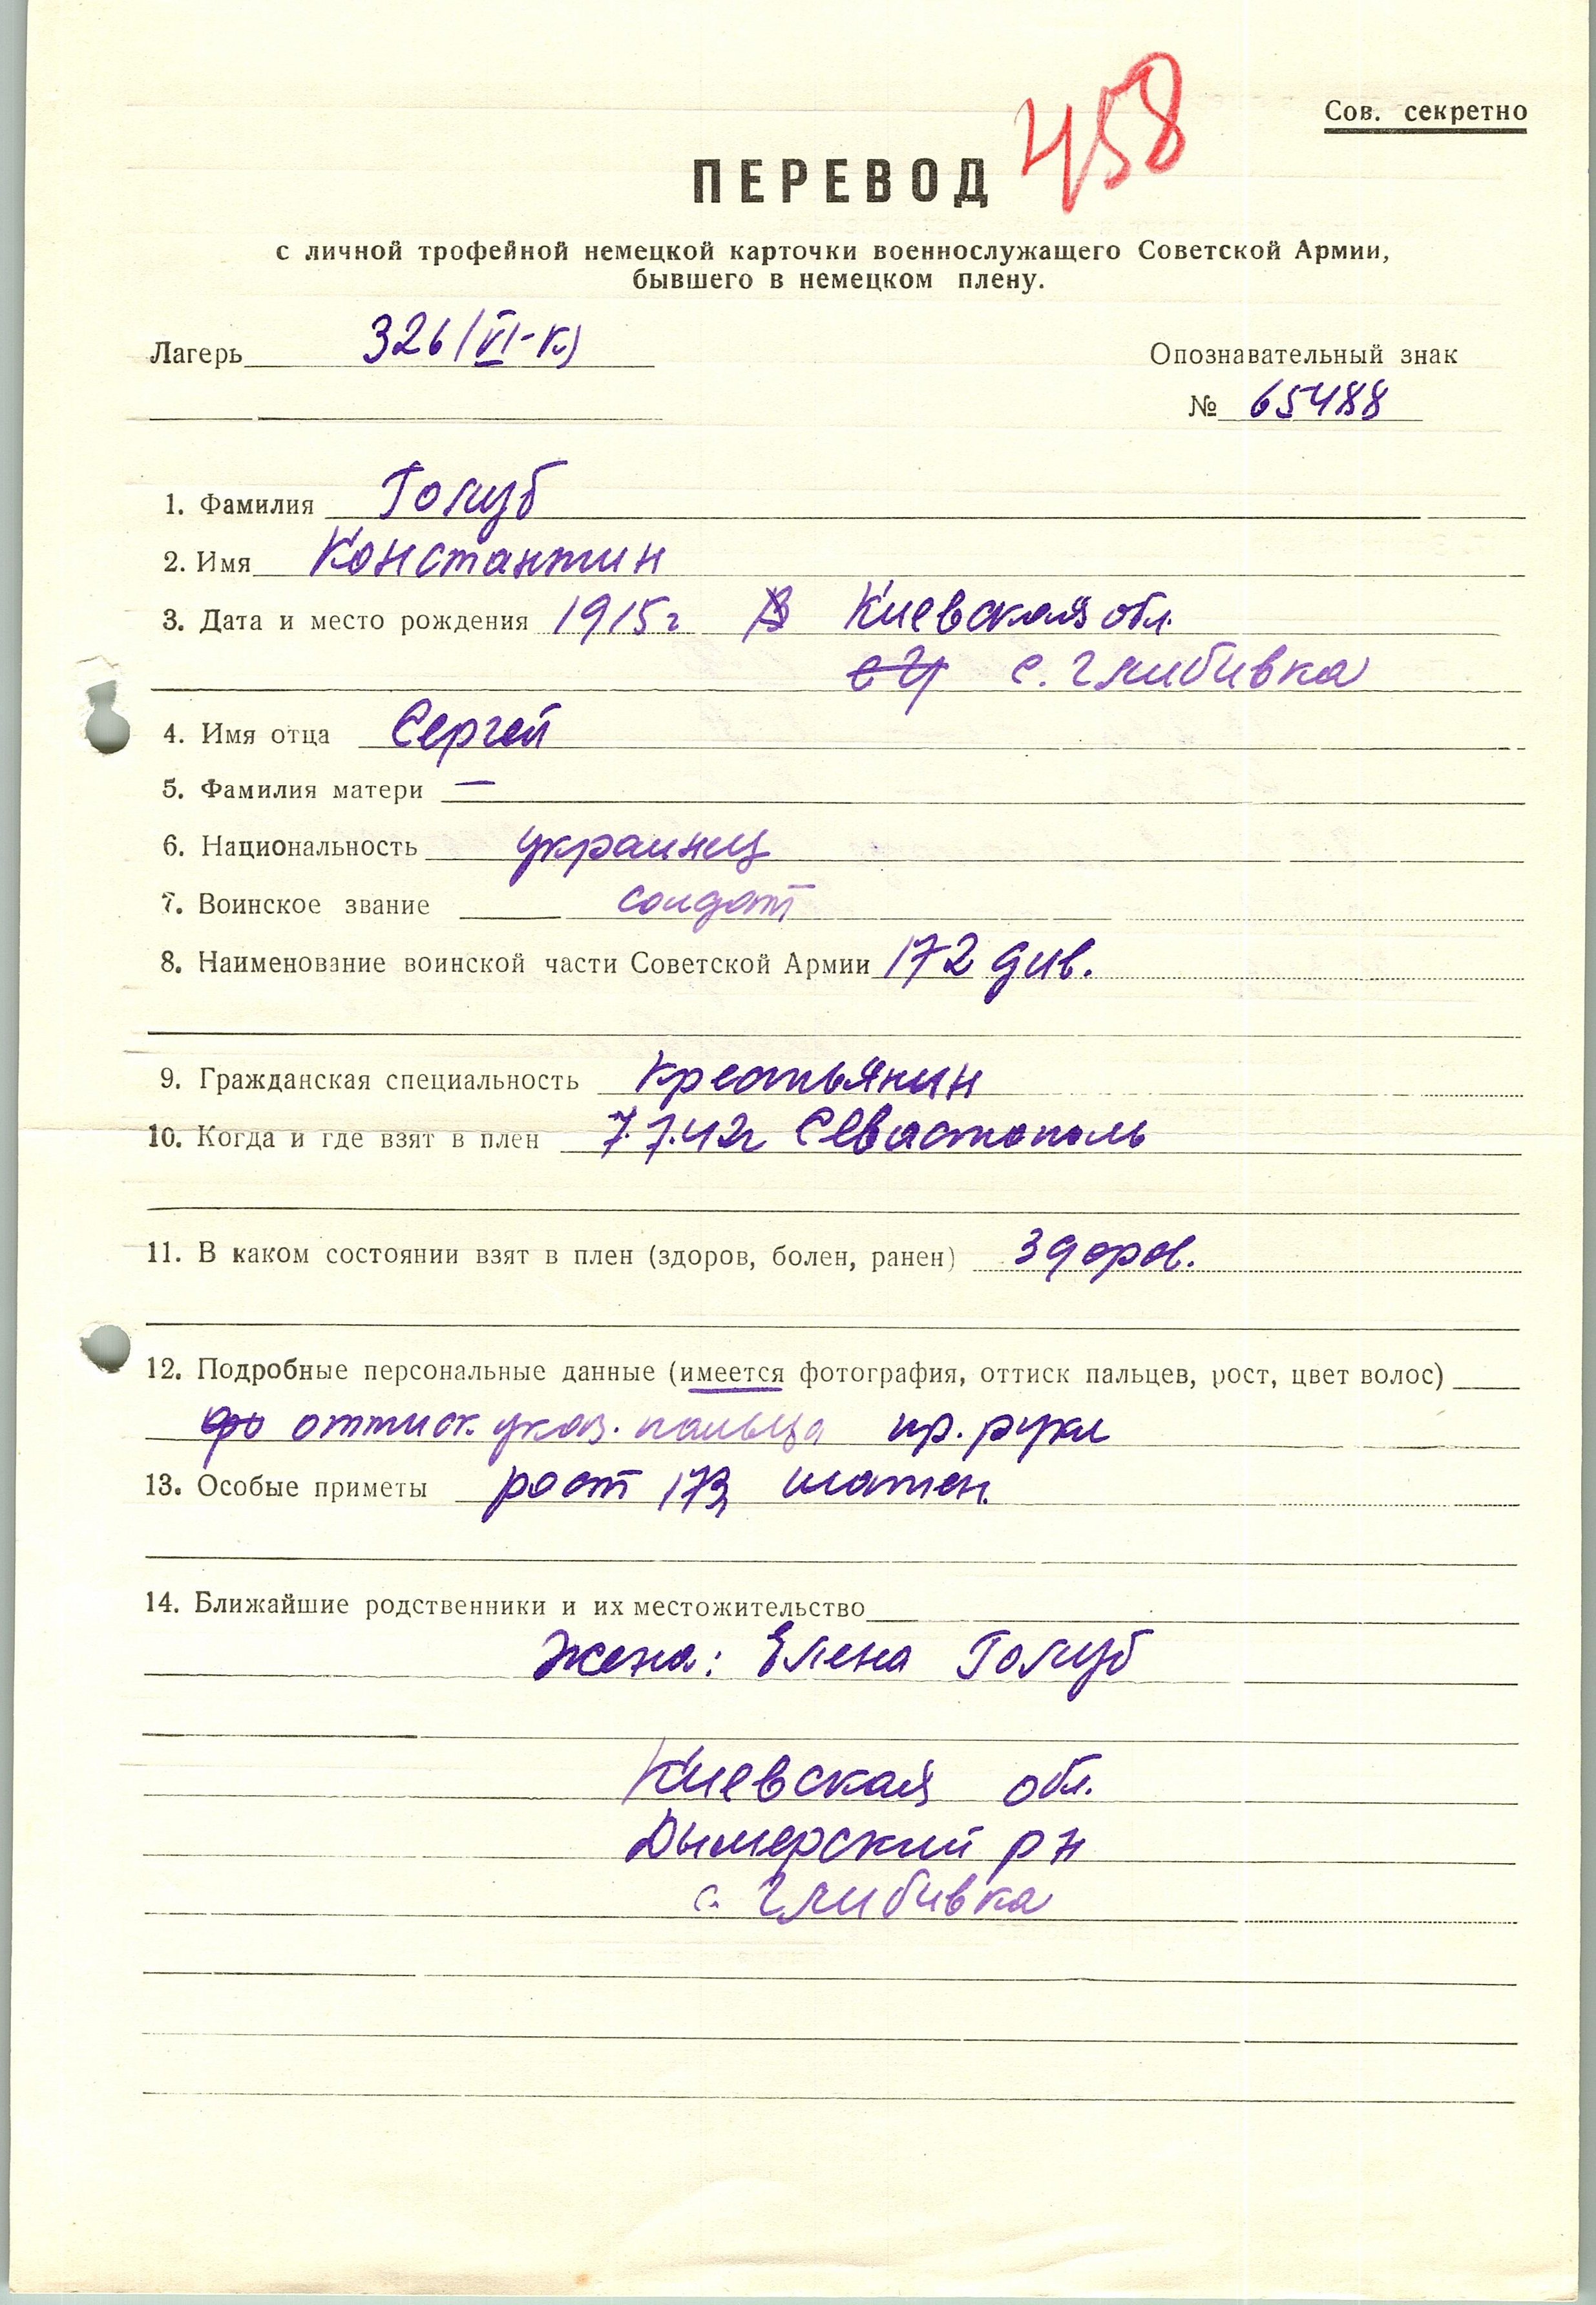 458
Сов. секретно
ПЕРЕВОД
с личной трофейной немецкой карточки военнослужащего Советской Армии,
бывшего в немецком плену.
Лагерь 326/VI-К)
Опознавательный знак
№ 65488
1. Фамилия Голуб
2. Имя Константин
3. Дата и место рождения 1915г В Киевская обл.
с. Глибивка
4. Имя отца Сергей
5. Фамилия матери —
6. Национальность украинец
7. Воинское звание солдат
8. Наименование воинской части Советской Армии 172 див.
9. Гражданская специальность крестьянин
10. Когда и где взят в плен 7.7.42г Севастополь
11. В каком состоянии взят в плен (здоров, болен, ранен) здоров.
12. Подробные персональные данные (имеется фотография, оттиск пальцев, рост, цвет волос)
фо оттиск указ. пальца пр. руки
13. Особые приметы рост 173, шатен.
14. Ближайшие родственники и их местожительство
Жена: Елена Голуб
Киевская обл.
Дымерский р н
с. Глибивка